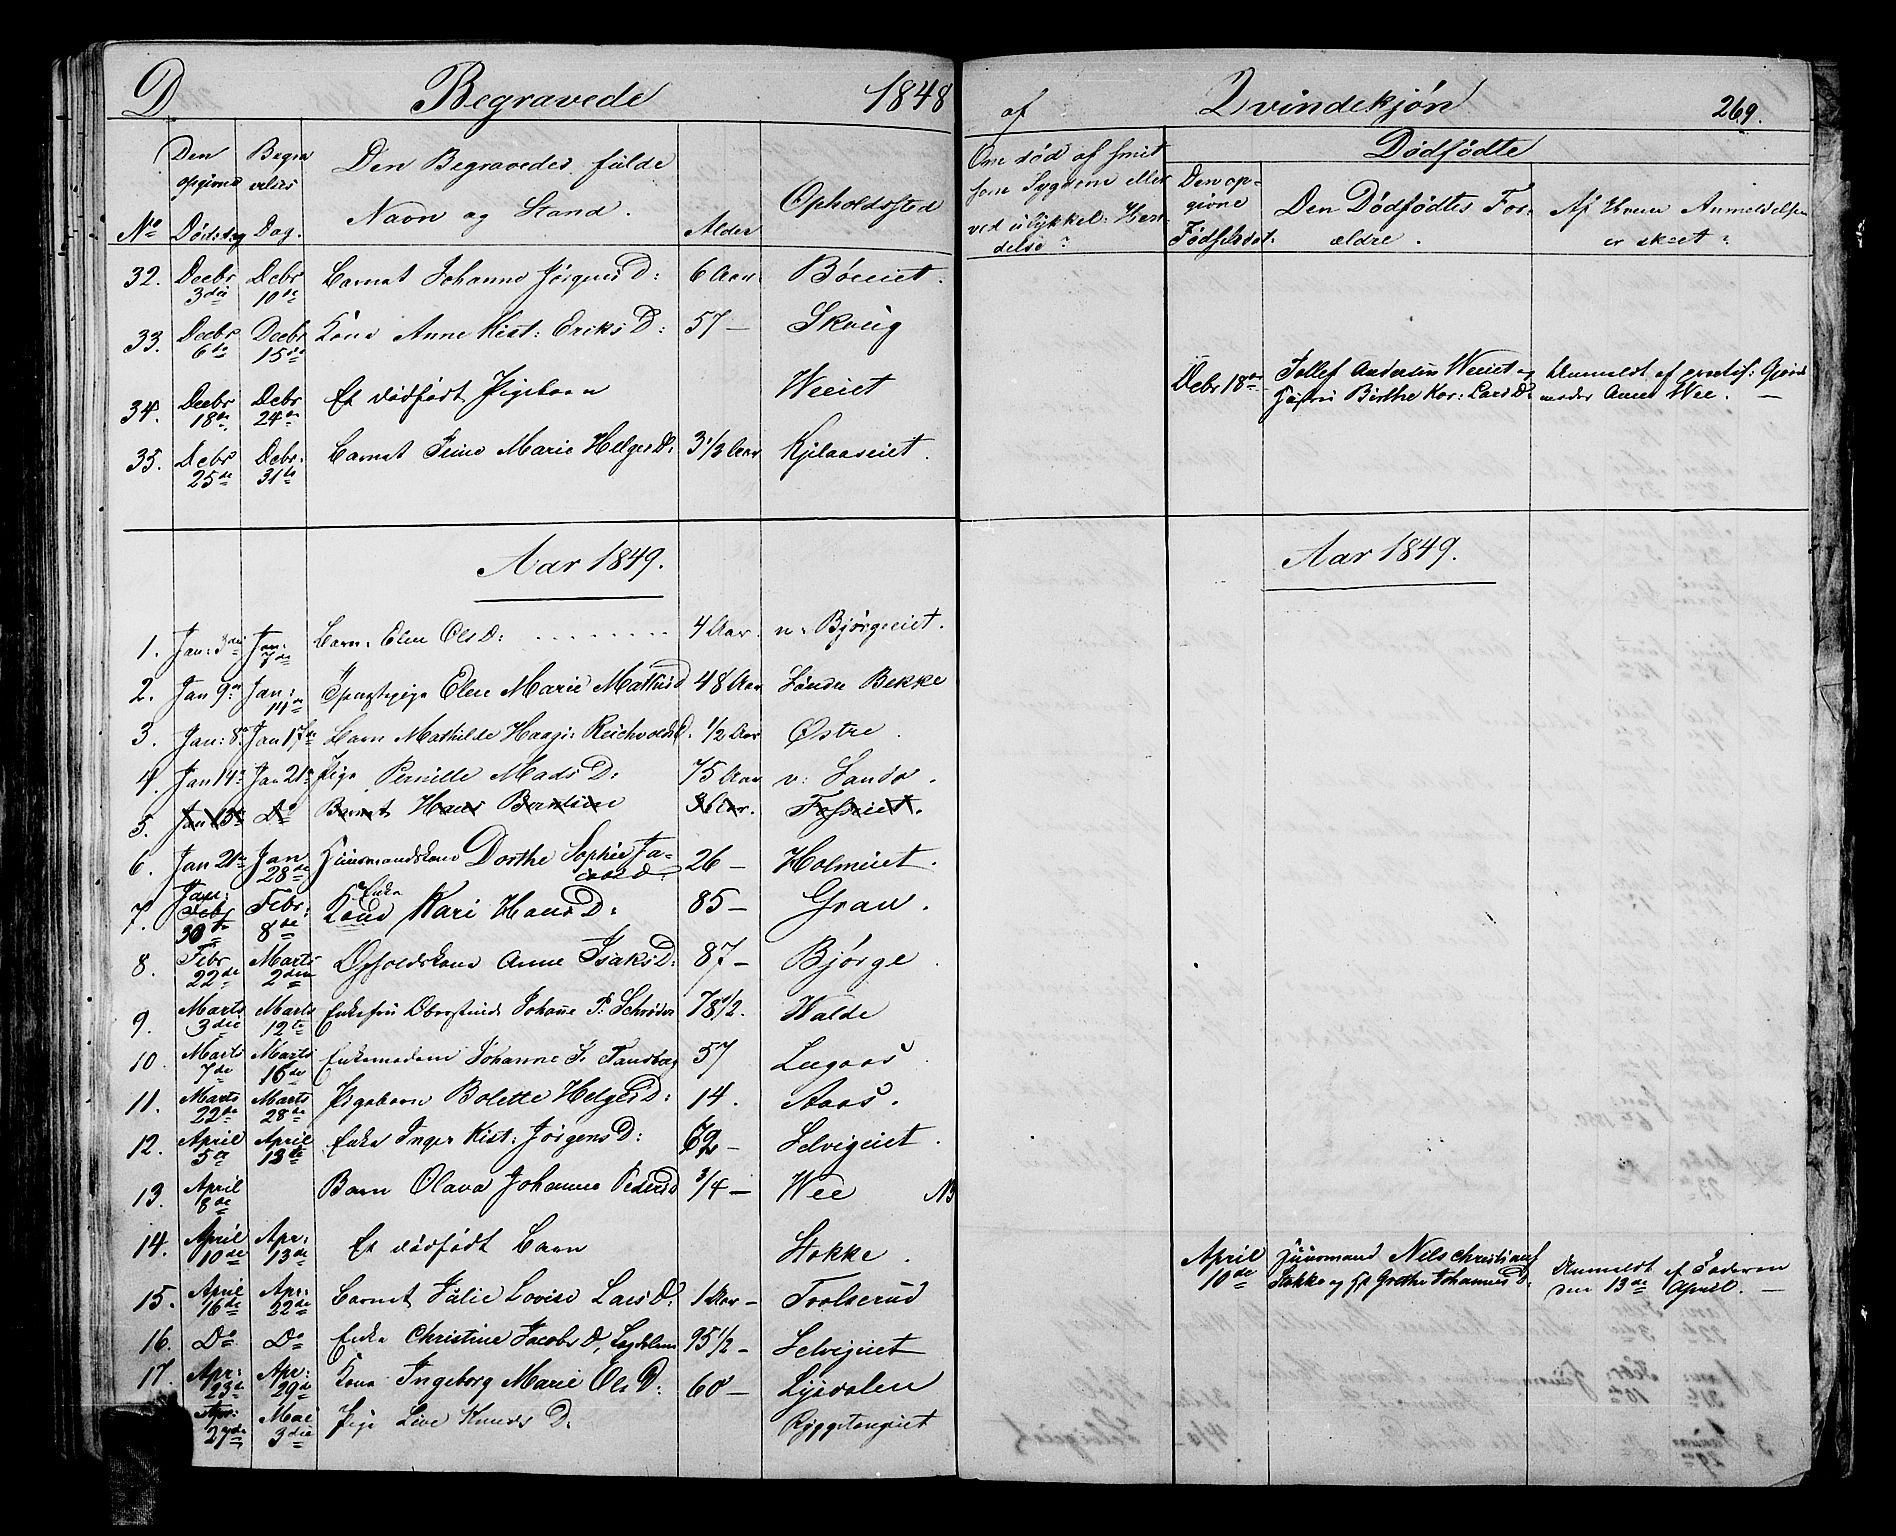 D Begravede 1848 af Qvindekjøn 269.
Den opgivne Dødsdag
Begravelses Dag.
Den Begravedes fulde Navn og Stand.
Alder
Opholdssted
Om død af smitsom Sygdom eller ved ulykkel: Hændelse?
Dødfødte
Den opgivne Fødselsdat.
Den Dødfødtes Forældre.
Af hvem Anmeldelsen er skeet?
No
32. Decbr 3die Decbr 10de Barnet Johanne JørgensD: 6 Aar. Bøeiet.
33. Decbr 6te Decbr 15de Kone Anne Kist: EriksD: 57 — Skoug
34. Decbr 18de Decbr 24de Et dødfødt Pigebarn Weeiet Decbr 18de Tollef Andersen Weeiet og Hustru Birthe Kar: LarsD: Anmeldt af Gjordemoder Anne Wee. —
35. Decbr 25de Decbr. 31te Barnet Marie HelgesD: 3 1/2 Aar Kjølaaseiet.
Aar 1849. Aar 1849.
1. Jan: 3die Jan: 7de Barn. Elen OlsD: 4 Aar. n: Bjørgeeiet.
2. Jan 9de Jan: 14de Elen Marie MathisD 48 Aar Søndre Bekke
3. Jan: 8de Jan 17de Barn Mathilde ReichvoldsD. 1/2 Aar Østre.
4. Jan 14de Jan 21de Pige Pernille MadsD: 75 Aar v: Sando.
5. Jan 15de Do Barnet Hans Berntsen 3 Aar. Fosseiet.
6. Jan 21de Jan 28de Huusmandskone Dorthe Sophie JacobsD. 26 — Holmeiet.
7. Jan: Febr 30te Febr: 8de Kone Enke Kari HansD: 85 — Gran.
8. Febr 22de Marts 2den Opholdskone Anne IsaksD: 87 — Bjørge.
9. Marts 3die Marts 12te Enkefru Obrestinde Johanne P: Schrøder 78 1/2. Walde
10. Marts 7de Marts 16de Enkemadam Johanne S. Tandberg 57 Lugaas.
11. Marts 22de Marts 28de Pigebarn Bolette HelgesD: 14. Aaas.
12. April 5te April 13te Enke Inger Kist: JørgensD: 62 — Selvigeiet.
13. April 8de Barn Olava Johanne PedersD 3/4 — Wee NB
14. April 10de Apr: 13de Et dødfødt Barn Stokke. April 10de Huusmand Nils Christians: Stokke og H: Grethe JohannesD: Anmeldt af Faderen den 13de April. —
15. April 16de Apr: 22de Barnet Julie Lovise LarsD: 1 Aar — Foolserud
16. Do Do Enke Christine JacobsD, 95 1/2 — Selvigeiet
17. Apr: 23de Apr: 29de Kone Ingeborg Marie OlsD: 60 — Lysdalen
Apr: 27de Mai 3die Pige Live KnudsD: Ryggetangeiet